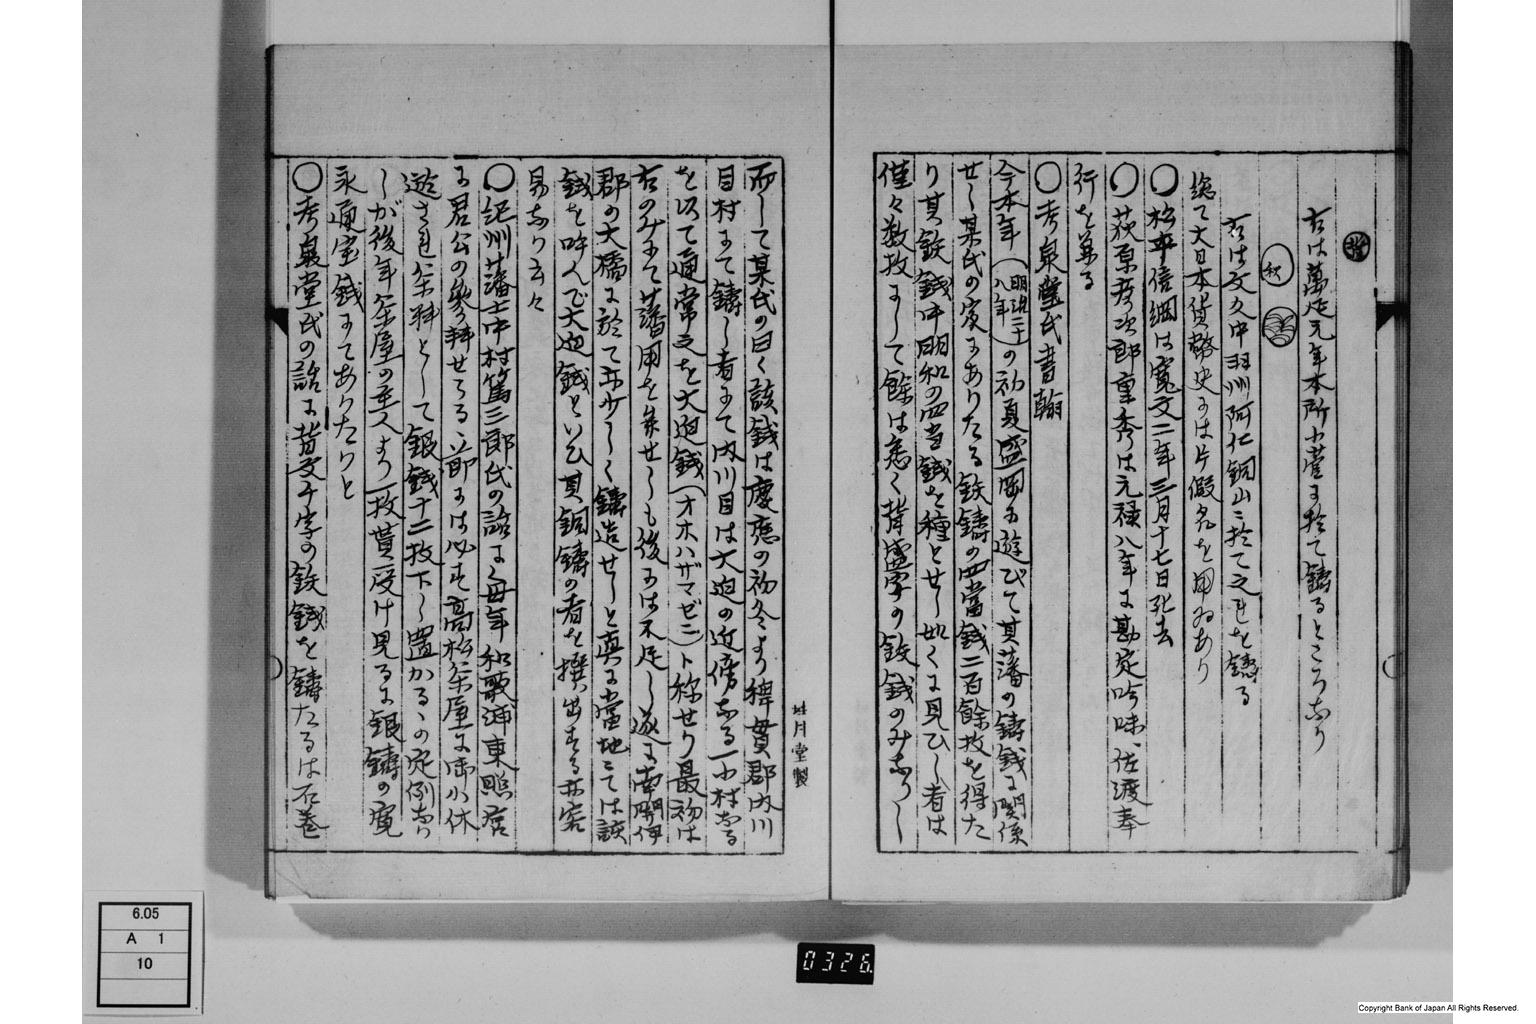 右は萬延元年本所小菅に於て鑄るところなり
秋
右は文久中羽州阿仁銅山ニ於て之を鑄る
総て大日本貨幣史には片假名を用ゐあり
〇松平信綱は寛文二年三月十七日死去
〇荻原彦次郎重秀は元禄八年に勘定吟味、佐渡奉
行を兼る
〇考泉堂氏書翰
今本年(明治二十八年)の初夏盛岡に遊びて其藩の鑄錢に関係
せし某氏の家にありたる鉄鑄の四當錢二百餘枚を得た
り其鉄錢中明和の四当錢を種とせし如くに見ひし者は
僅々数枚にして餘は悉く背盛字の鉄錢のみなりし
而して某氏の曰く該錢は慶應の初冬より稗貫郡内川
目村にて鑄し者にて内川目は大迫の近傍なる一小村なる
を以て通常之を大迫錢(オホハザマゼニ)ト称せり最初は
右のみにて藩用を集せしも後には不足し遂に南閉伊
郡の大橋に於て亦少しく鑄造せしと真に當地にては該
錢を呼んで大迫錢といひ其銅鑄の者を撰出する亦容
易なり云々
〇記州藩士中村篤三郎氏の話に毎年和歌浦東照宮
に君公の参拜せらる節には必ず高松茶屋に御小休
遊され茶料として銀錢十二枚下し置かるゝの定例なり
しが後年茶屋の主人より一枚貰受け見るに銀鑄の寛
永通宝錢にてありたりと
〇考泉堂氏の話に背文千字の鉄錢を鑄たるは石巻
月堂製
6.05
A 1
10
0326
Copyright Bank of Japan All Rights Reserved.